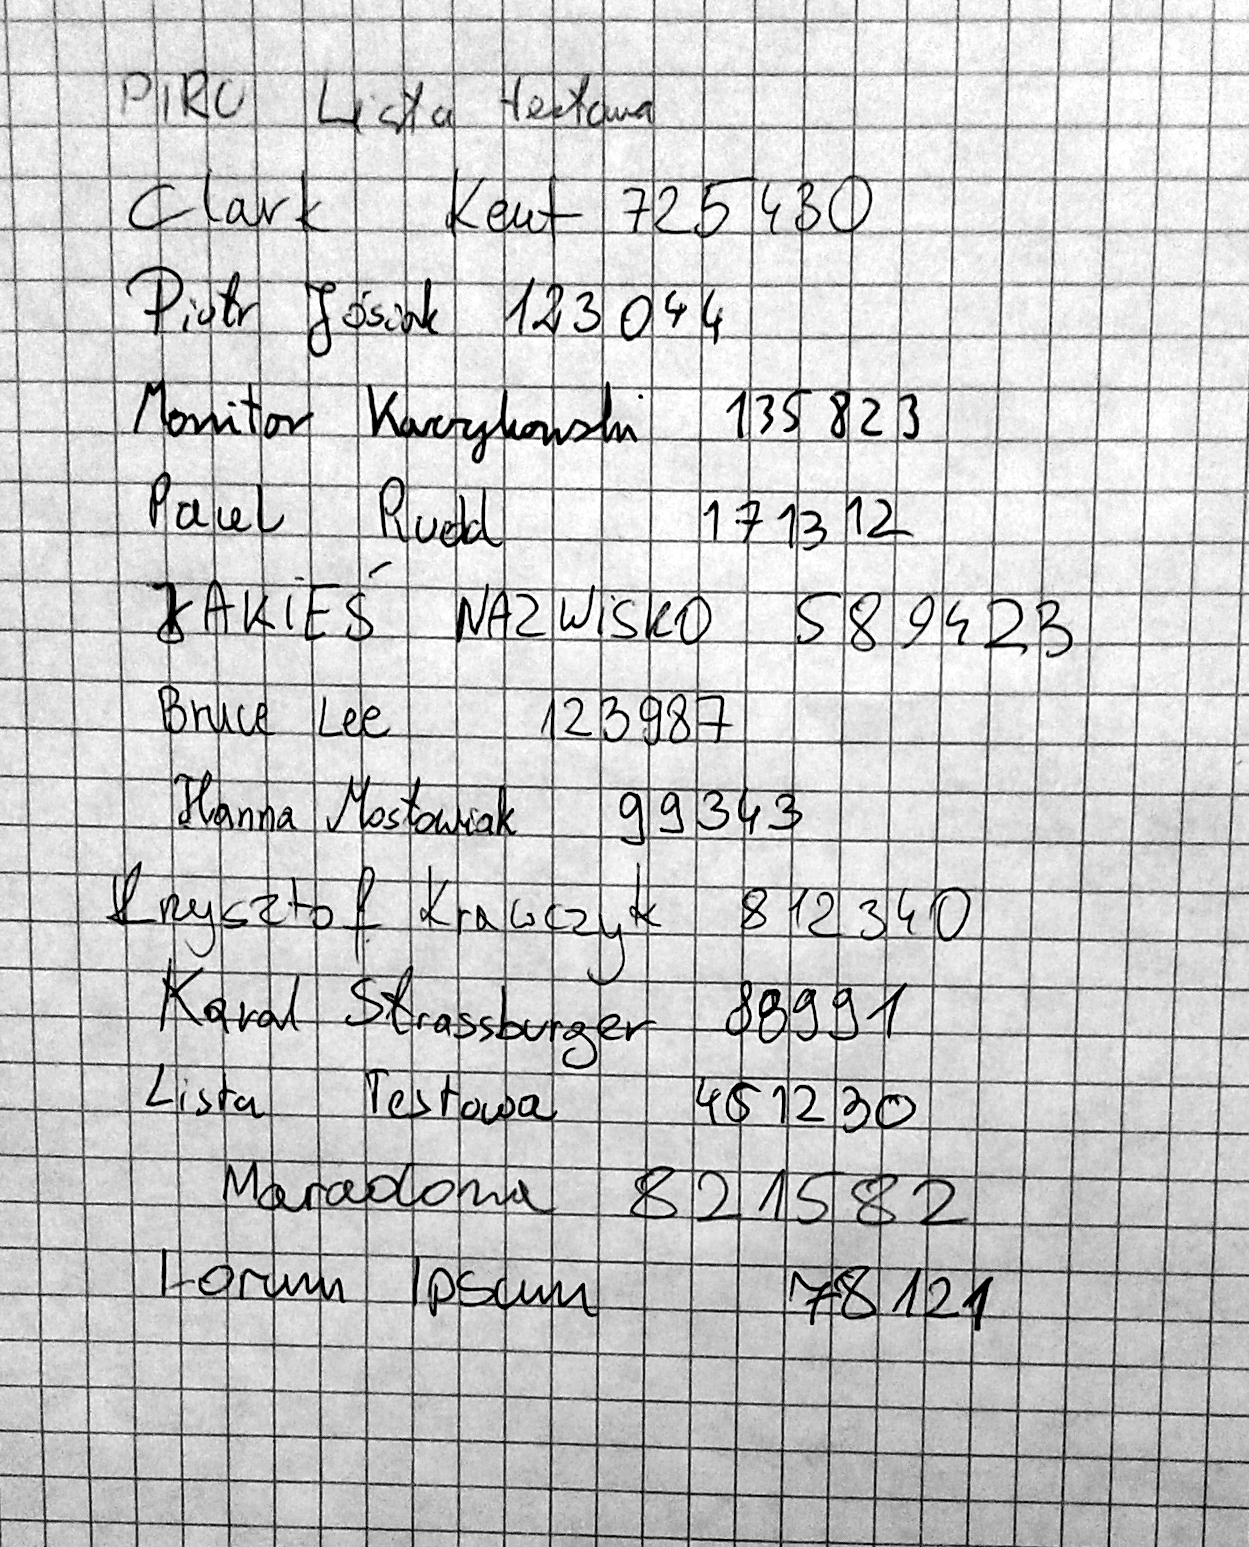 PIRO Lista testowa
Clark Kent 725430
Piotr Jósiak 123044
Monitor Kaczykowski 135823
Paweł Rudd 171312
JAKIEŚ NAZWISKO 589423
Bruce Lee 123987
Hanna Mostowiak 99343
Krzysztof Krawczyk 812340
Karol Strassburger 88991
Lista Testowa 461230
Maradona 821582
Lorum Ipsum 78121